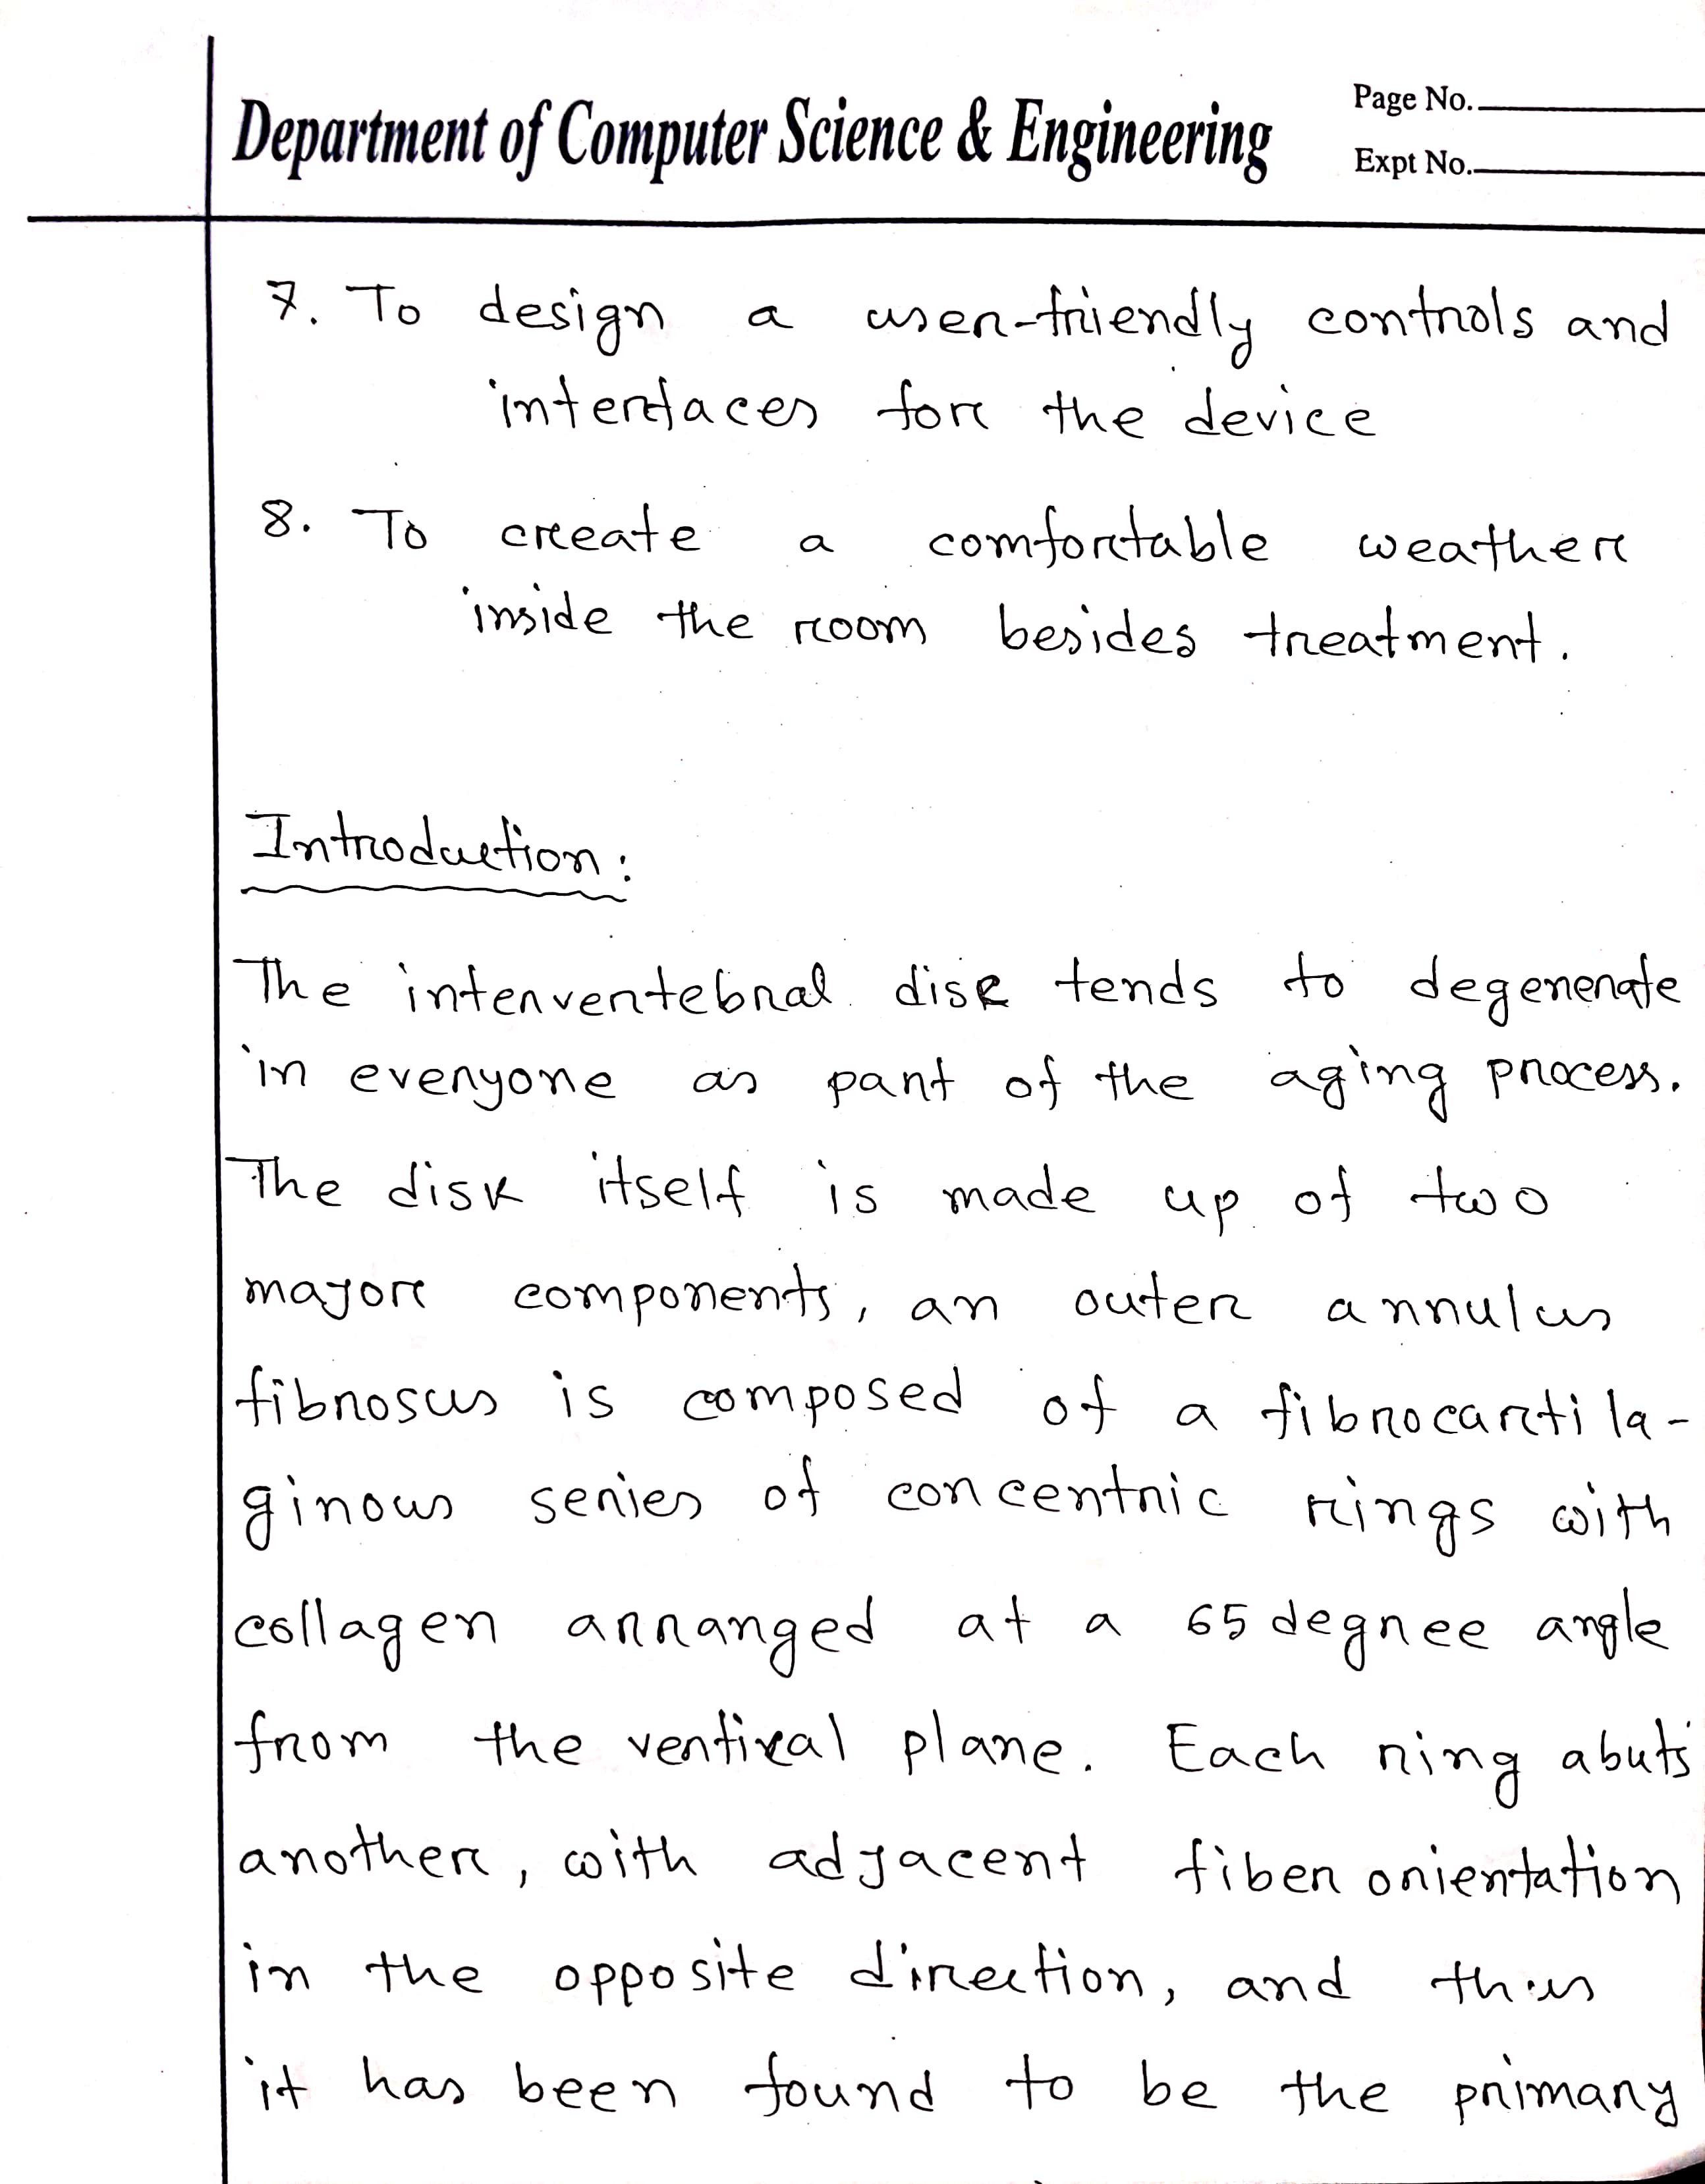 Department of Computer Science & Engineering
Page No.
Expt No.
7. To design a user-friendly controls and
interfaces for the device
8. To create a comfortable weather
inside the room besides treatment.
Introduction:
The intervertebral disk tends to degenerate
in everyone as part of the aging process.
The disk itself is made up of two
major components, an outer annulus
fibrosus is composed of a fibrocartila-
ginous series of concentric rings with
collagen arranged at a 65 degree angle
from the vertical plane. Each ring abuts
another, with adjacent fiber orientation
in the opposite direction, and thus
it has been found to be the primary